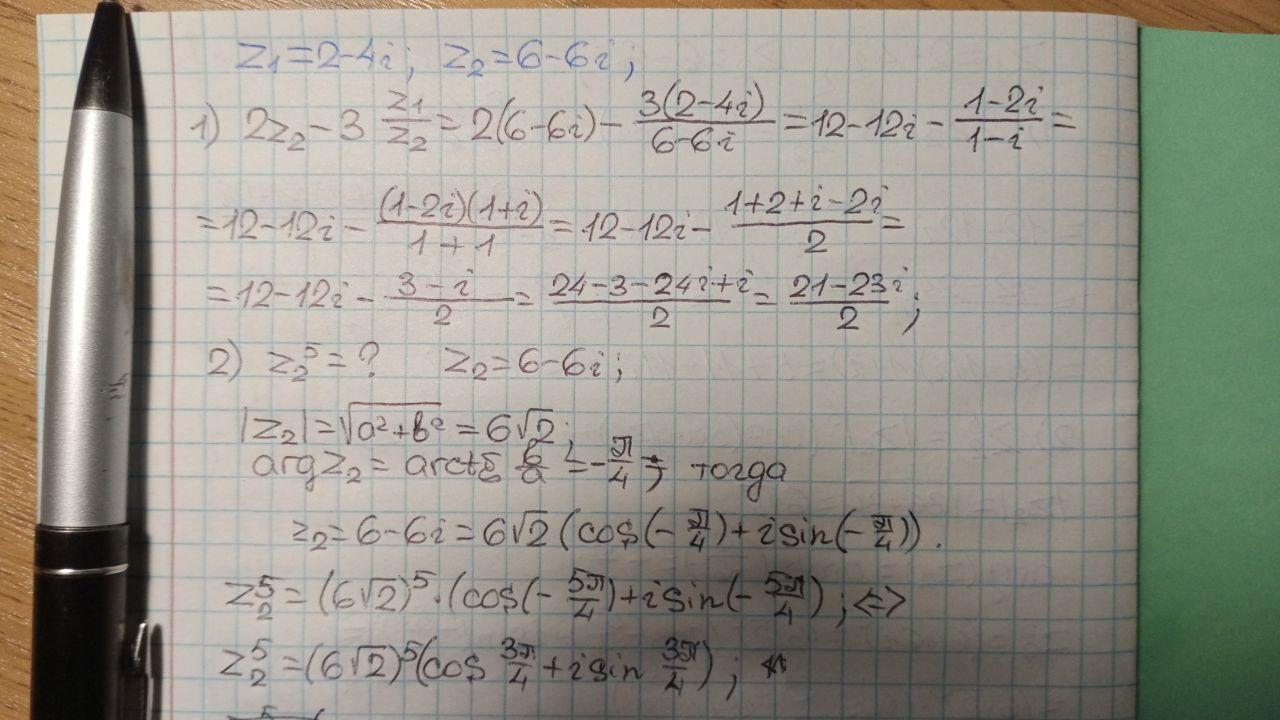 z₁=2-4i; z₂=6-6i;
1) 2z₂-3 z₁/z₂ = 2(6-6i)- 3(2-4i)/(6-6i) =12-12i- (1-2i)/(1-i) =
=12-12i- (1-2i)(1+i)/(1+1) = 12-12i- (1+2+i-2i)/2 =
=12-12i- (3-i)/2 = (24-3-24i+i)/2 = (21-23i)/2 ;
2) z₂⁵=? z₂=6-6i;
|z₂|=√(a²+b²) =6√2;
arg z₂ = arctg b/a = -π/4 ; тогда
z₂=6-6i=6√2 (cos(-π/4)+i sin(-π/4)).
z₂⁵=(6√2)⁵·(cos(-5π/4)+i sin(-5π/4) ; <=>
z₂⁵=(6√2)⁵(cos 3π/4 + i sin 3π/4) ;